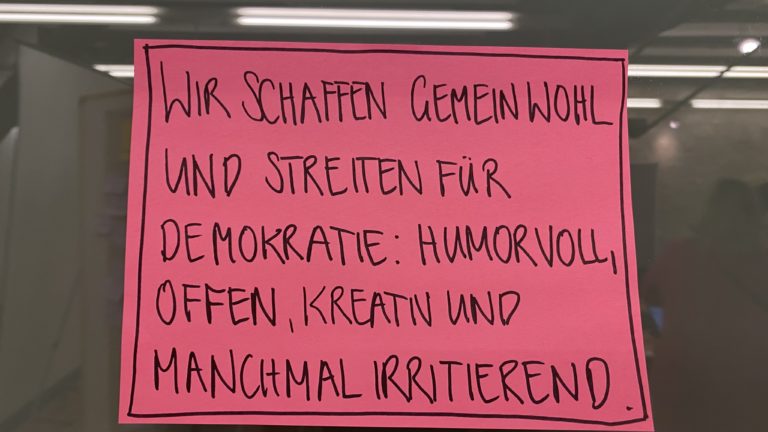 WIR SCHAFFEN GEMEINWOHL
UND STREITEN FÜR
DEMOKRATIE: HUMORVOLL,
OFFEN, KREATIV UND
MANCHMAL IRRITIEREND.